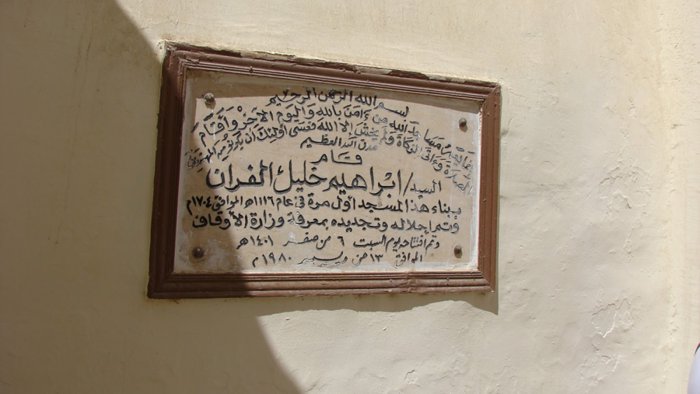 بسم الله الرحمن الرحيم
إنما يعمر مساجد الله من ءامن بالله واليوم الآخر وأقام
الصلاة وءاتى الزكاة ولم يخش إلا الله فعسى أولئك أن يكونوا من المهتدين
صدق الله العظيم
قام
السيد/ ابراهيم خليل الفران
ببناء هذا المسجد اول مرة في عام ١١١٦هـ الموافق ١٧٠٤م
وتم إحلاله وتجديده بمعرفة وزارة الأوقاف
وتم افتتاحه يوم السبت ٦ من صفر ١٤٠١هـ
الموافق ١٣ من ديسمبر ١٩٨٠م